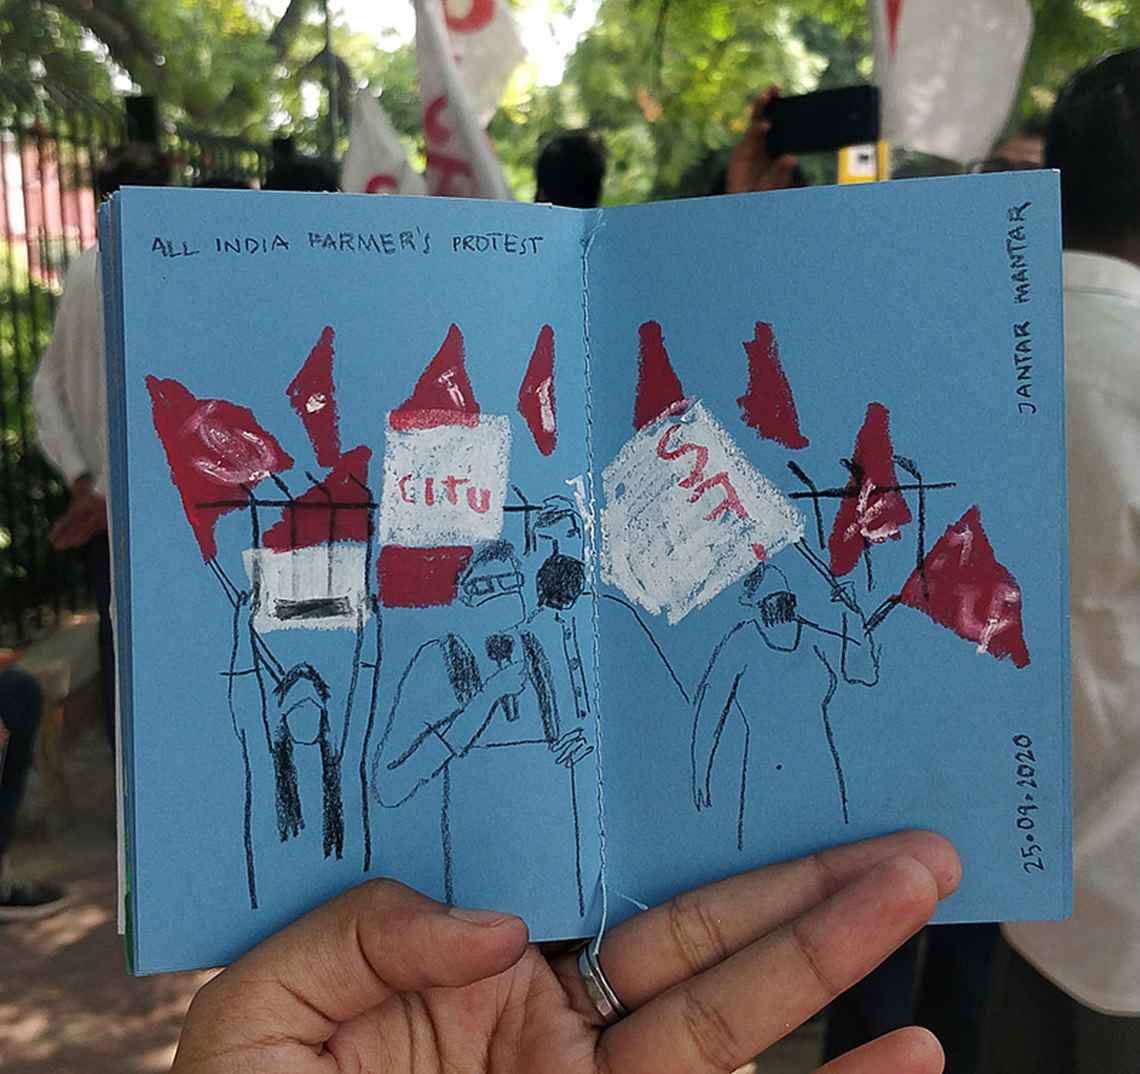 ALL INDIA FARMER'S PROTEST
JANTAR MANTAR
CITU
25.09.2020